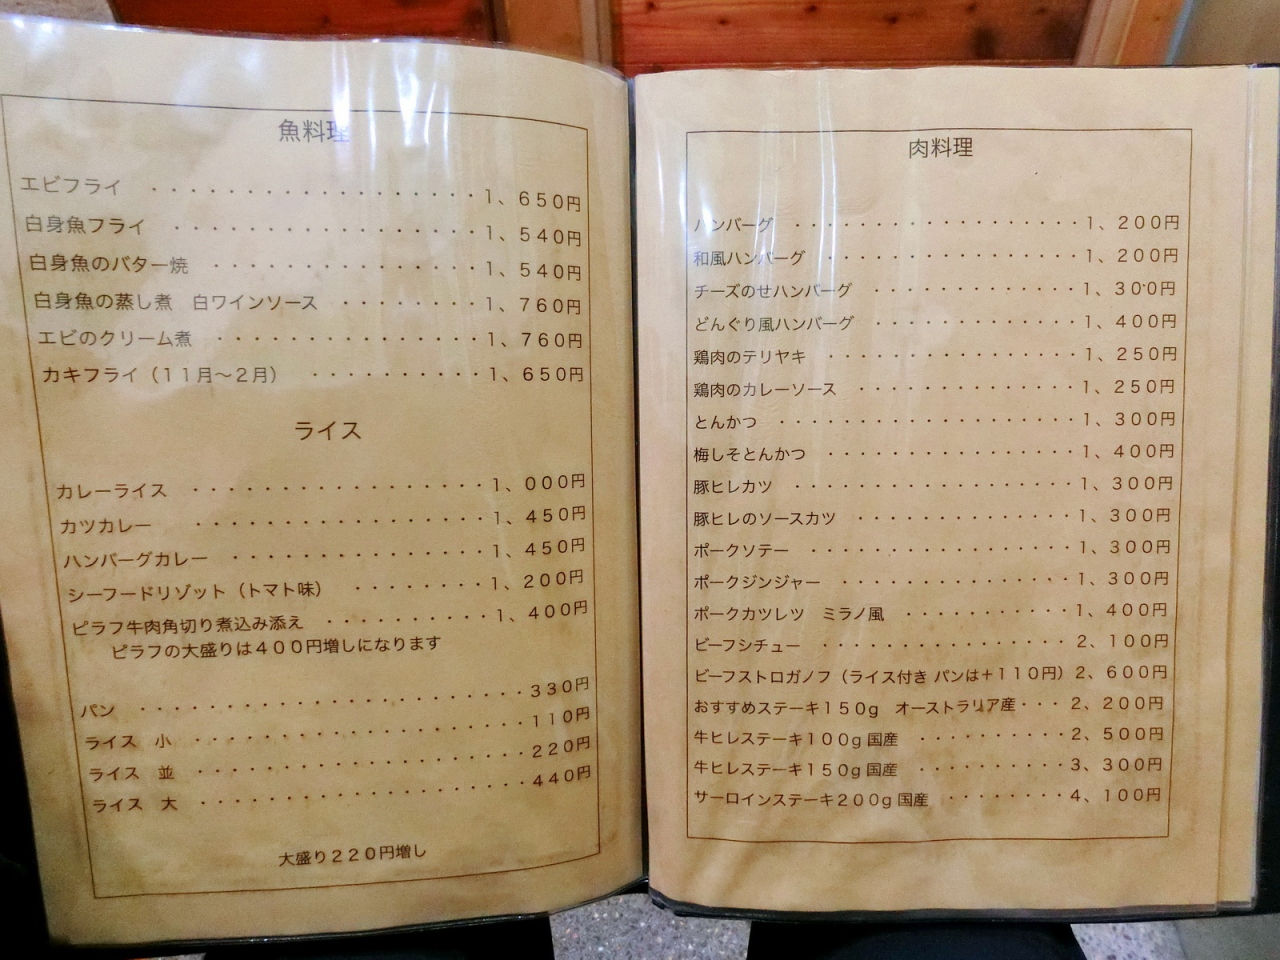 魚料理
エビフライ ・・・・・・・・・・・・・・・・・1、650円
白身魚フライ ・・・・・・・・・・・・・・・・1、540円
白身魚のバター焼 ・・・・・・・・・・・・・・1、540円
白身魚の蒸し煮 白ワインソース ・・・・・・・1、760円
エビのクリーム煮 ・・・・・・・・・・・・・・1、760円
カキフライ（11月〜2月） ・・・・・・・・・1、650円
ライス
カレーライス ・・・・・・・・・・・・・・・・1、000円
カツカレー ・・・・・・・・・・・・・・・・1、450円
ハンバーグカレー ・・・・・・・・・・・・・1、450円
シーフードリゾット（トマト味） ・・・・・・・1、200円
ピラフ牛肉角切り煮込み添え ・・・・・・・・・1、400円
ピラフの大盛りは400円増しになります
パン ・・・・・・・・・・・・・・・・・・・・330円
ライス 小 ・・・・・・・・・・・・・・・・・110円
ライス 並 ・・・・・・・・・・・・・・・・・220円
ライス 大 ・・・・・・・・・・・・・・・・・440円
大盛り220円増し
肉料理
ハンバーグ ・・・・・・・・・・・・・・・1、200円
和風ハンバーグ ・・・・・・・・・・・・・・1、200円
チーズのせハンバーグ ・・・・・・・・・・・1、300円
どんぐり風ハンバーグ ・・・・・・・・・・・1、400円
鶏肉のテリヤキ ・・・・・・・・・・・・・1、250円
鶏肉のカレーソース ・・・・・・・・・・・・1、250円
とんかつ ・・・・・・・・・・・・・・・・1、300円
梅しそとんかつ ・・・・・・・・・・・・・1、400円
豚ヒレカツ ・・・・・・・・・・・・・・・1、300円
豚ヒレのソースカツ ・・・・・・・・・・・・1、300円
ポークソテー ・・・・・・・・・・・・・・1、300円
ポークジンジャー ・・・・・・・・・・・・1、300円
ポークカツレツ ミラノ風 ・・・・・・・・・1、400円
ビーフシチュー ・・・・・・・・・・・・・2、100円
ビーフストロガノフ（ライス付き パンは＋110円）2、600円
おすすめステーキ150g オーストラリア産・・・2、200円
牛ヒレステーキ100g国産 ・・・・・・・・2、500円
牛ヒレステーキ150g国産 ・・・・・・・・3、300円
サーロインステーキ200g国産 ・・・・・・・4、100円